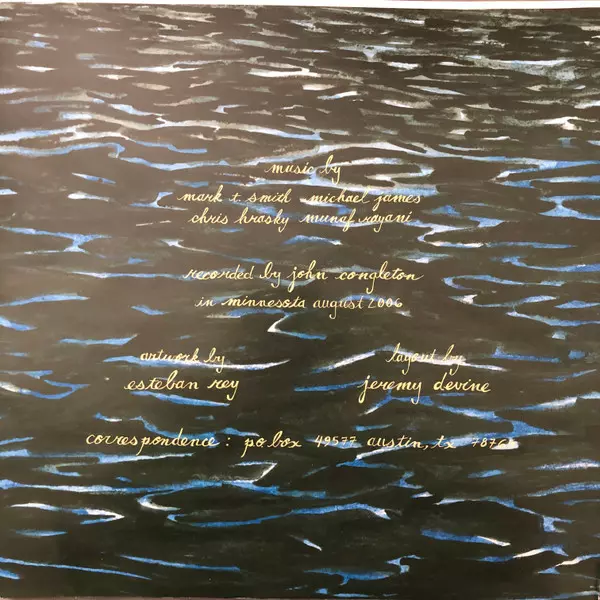 music by
mark t. smith michael james
chris hrasky munaf rayani
recorded by john congleton
in minnesota august 2006
artwork by
esteban rey
layout by
jeremy devine
correspondence: po box 49577 austin, tx